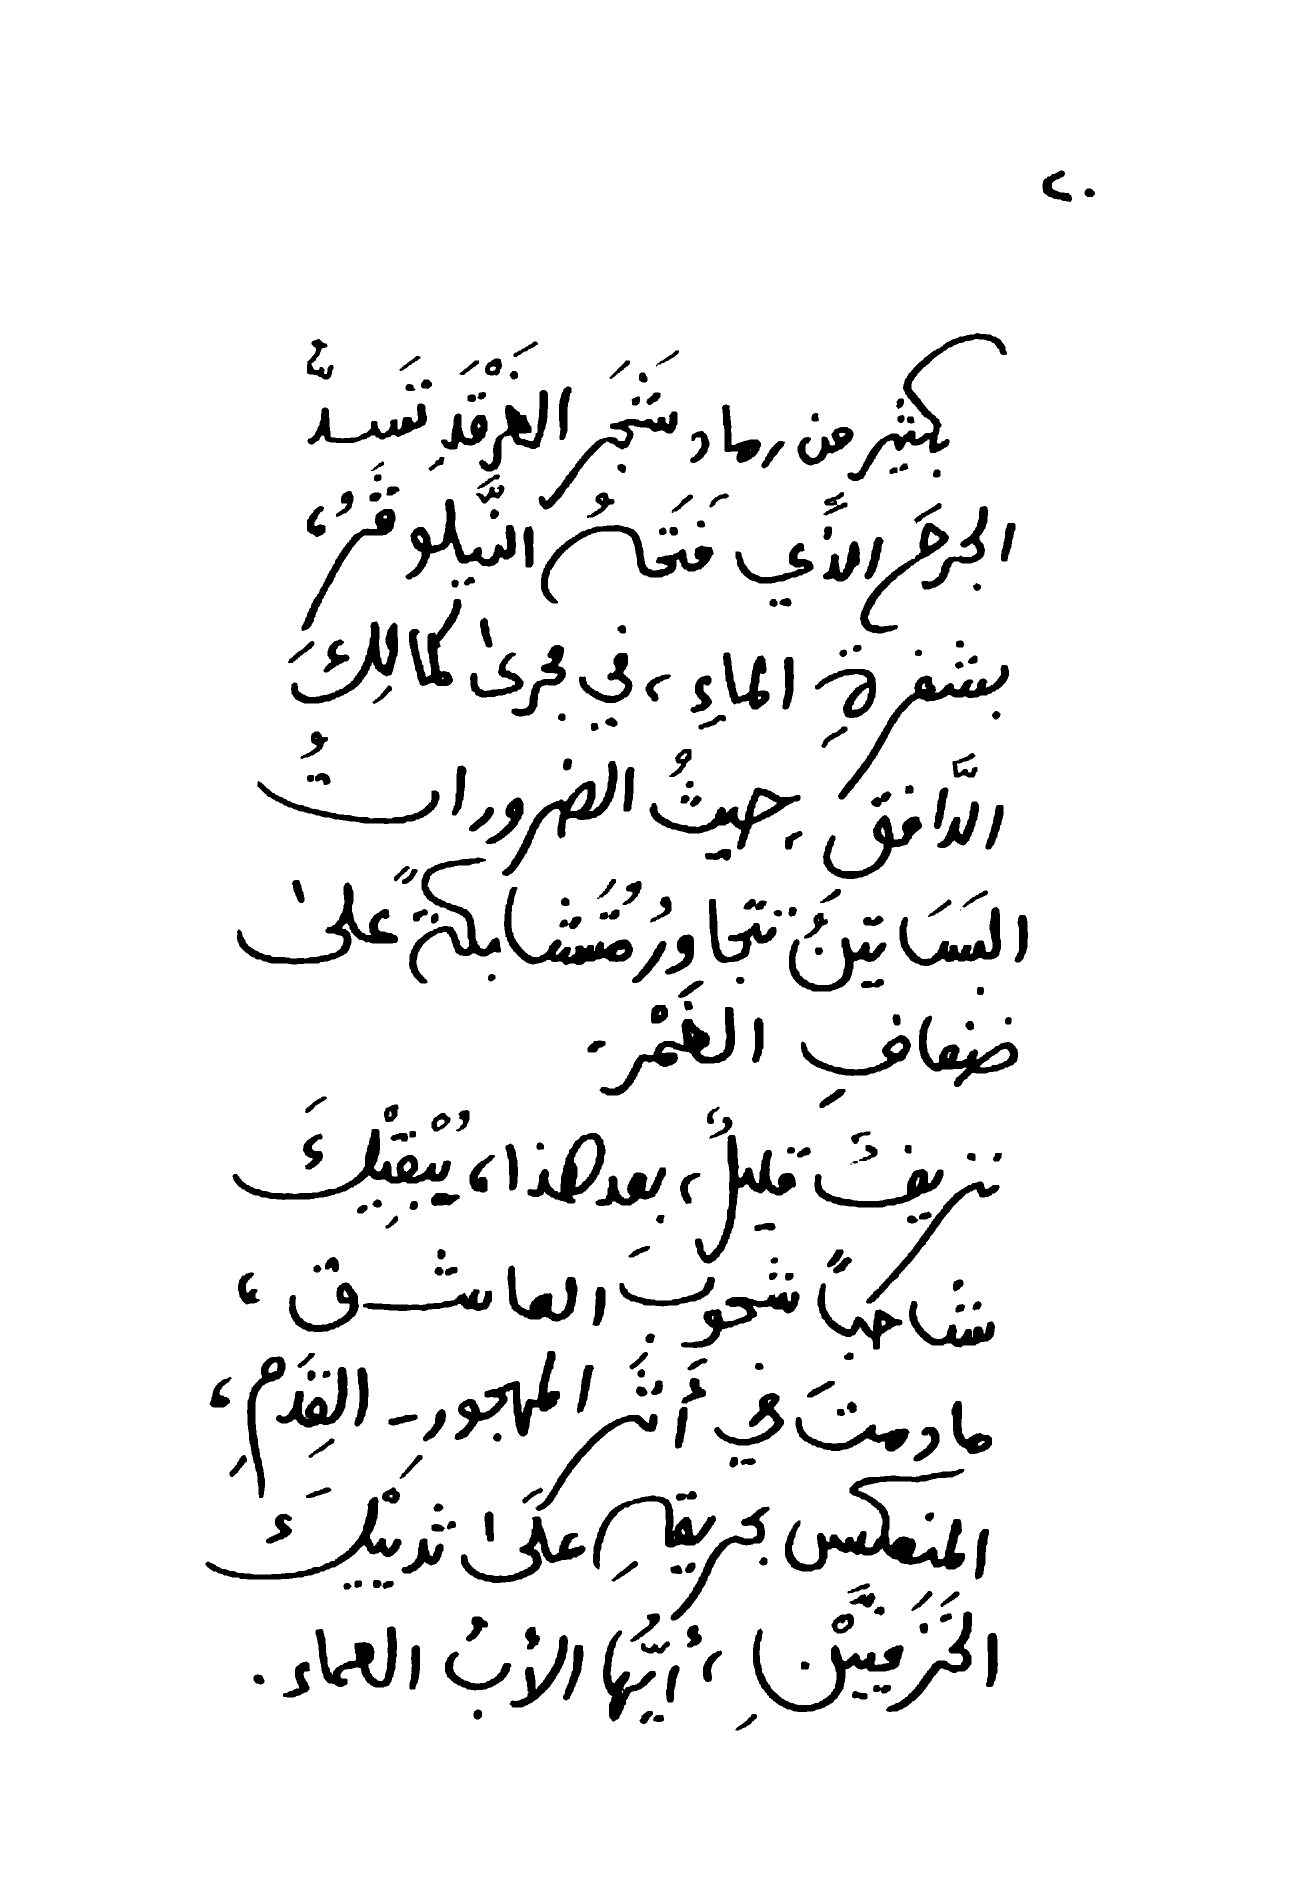 ٢٠
بكثير من رماد شَجَرِ الغَرْقَدِ تَسدُّ
الجرحَ الذَّي فَتَحَهُ النَّيلوفَرُ،
بشفرةِ الماءِ، في مجرىٰ كمالِكَ
الدَّافق. حيثُ الضرورات‍ُ
البَسَاتينُ تتجاورُ مُتَشابكةً علىٰ
ضفافِ الغَمْر.
نزيفَ قليلٌ، بعد هذا، يُبْقِيْكَ
شاحباً شحوبَ العاشق،
ما دمتَ في أَثَرِ المهجور - القِدَمِ،
المنعكس بحريقهِ علَىٰ ثدييْكَ
الخَزَفيَّيْنِ، أيُّها الأبُ العماء.